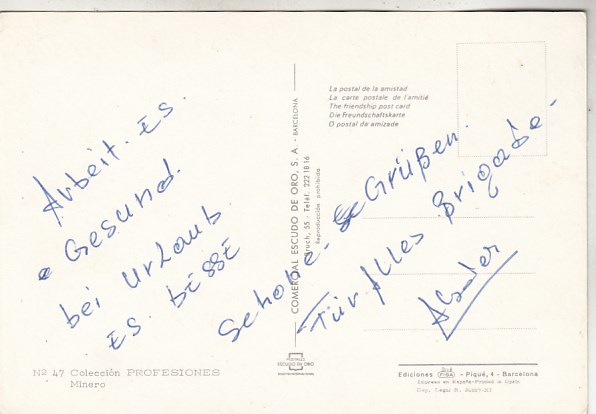 Arbeit. ES.
Gesund.
bei Urlaub.
ES. bESSE
Schone - Grüßen.
Für Alles Brigade -
COMERCIAL ESCUDO DE ORO, S. A. - BARCELONA
Bruch, 55 - Teléf. 222 18 16
Reproducción prohibida
La postal de la amistad
La carte postale de l'amitié
The friendship post card
Die Freundschaftskarte
O postal da amizade
Nº 47 Colección PROFESIONES
Minero
POSTALES
ESCUDO DE ORO
Ediciones FISA - Piqué, 4 - Barcelona